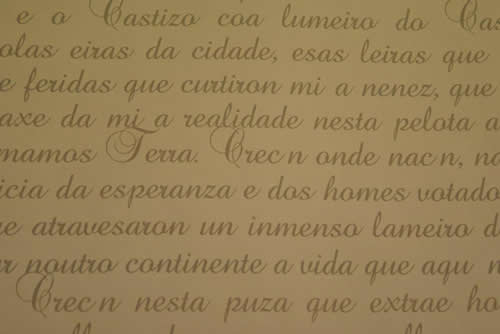 e o Castizo coa lumeiro do Cas
olas eiras da cidade, esas leiras que
e feridas que curtiron mi a nenez, que
axe da mi a realidade nesta pelota a
mamos Terra. Crec n onde nac n, na
icia da esperanza e dos homes votado
e atravesaron un inmenso lameiro d
r noutro continente a vida que aqu n
Crec n nesta puza que extrae ho